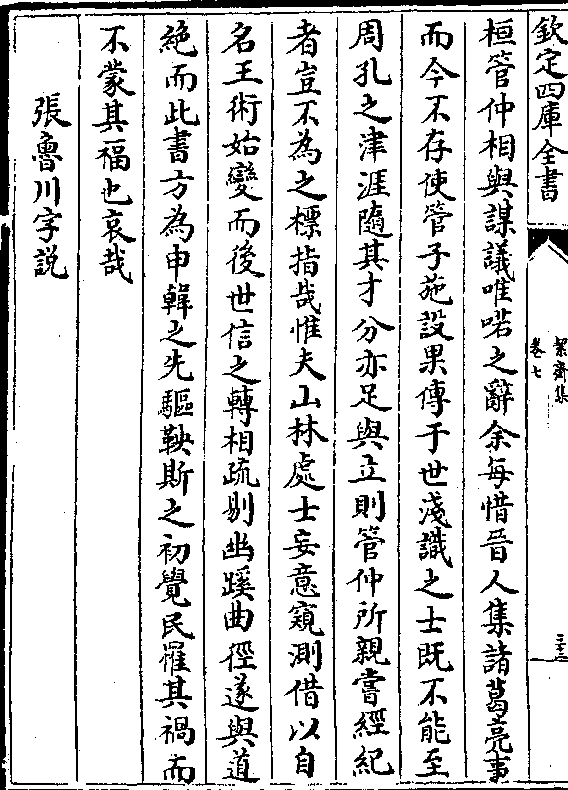 欽定四庫全書
絜齋集
卷七
桓管仲相與謀議唯喏之辭余每惜晉人集諸葛亮事
而今不存使管子施設果傳于世淺識之士既不能至
周孔之津涯隨其才分亦足與立則管仲所親嘗經紀
者豈不為之標指哉惟夫山林處士妄意窺測借以自
名王術姑變而後世信之轉相疏剔幽蹊曲徑遂與道
絶而此書方為申韓之先驅鞅斯之初覺民罹其禍而
不蒙其福也哀哉
張魯川字説